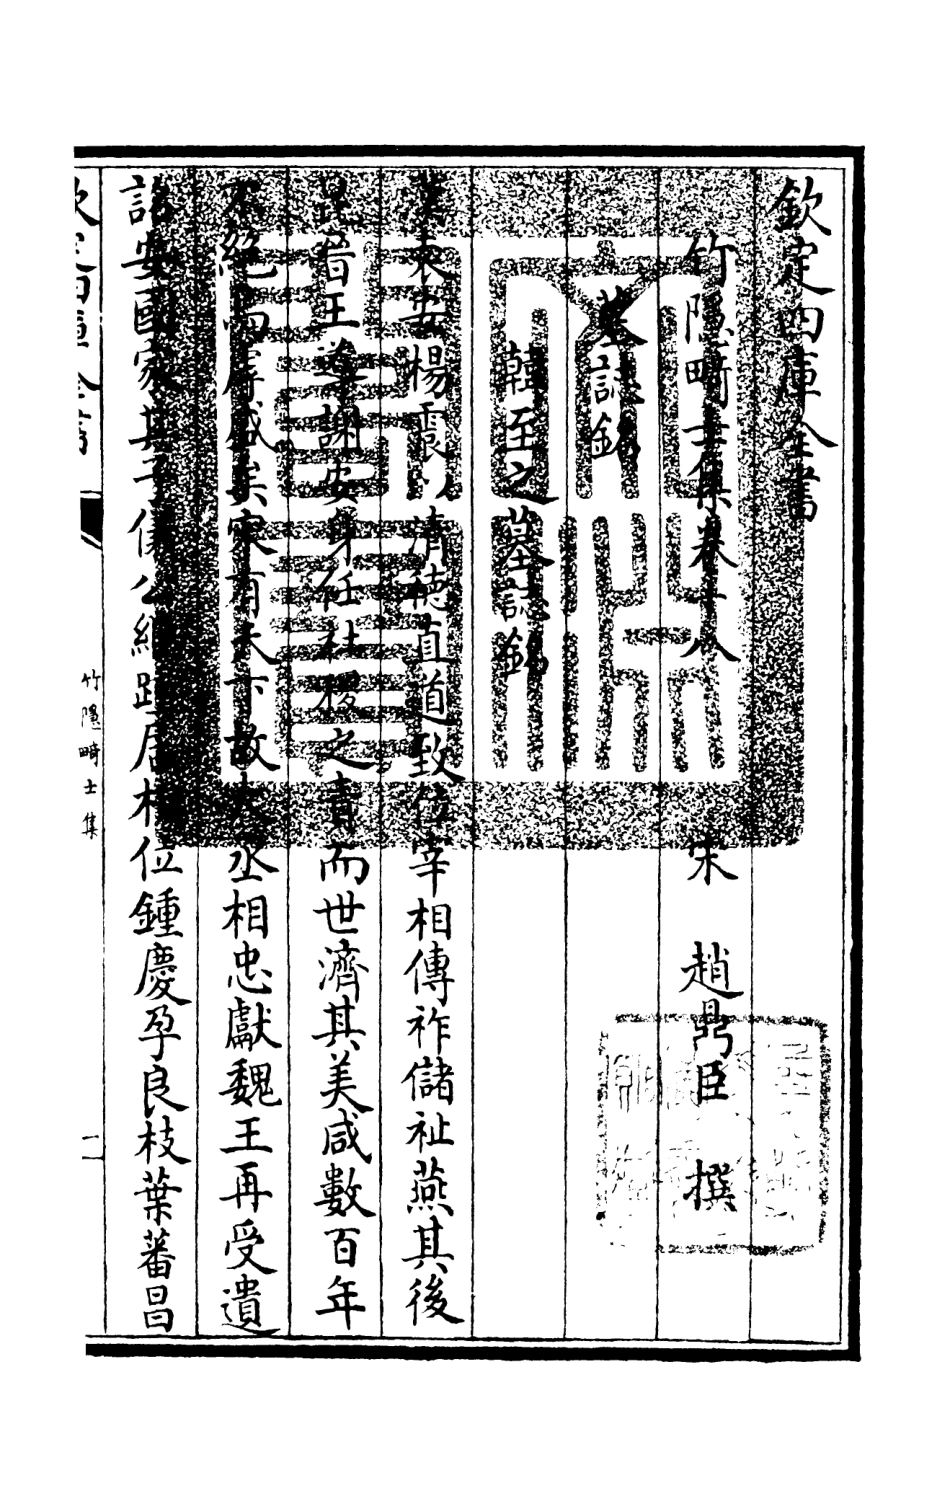 欽定四庫全書
竹隱畸士集卷十八
宋 趙鼎臣 撰
墓誌銘
韓至之墓誌銘
漢袁安楊震以清德直道致位宰相傳祚儲祉燕其後
昆晉王導謝安身任社稷之責而世濟其美咸數百年
不絕
盛矣宋有天下故
丞相忠獻魏王再受遺
詔安國家其子儀公繼踵居相位鍾慶孕良枝葉蕃昌
竹隱畸士集
一